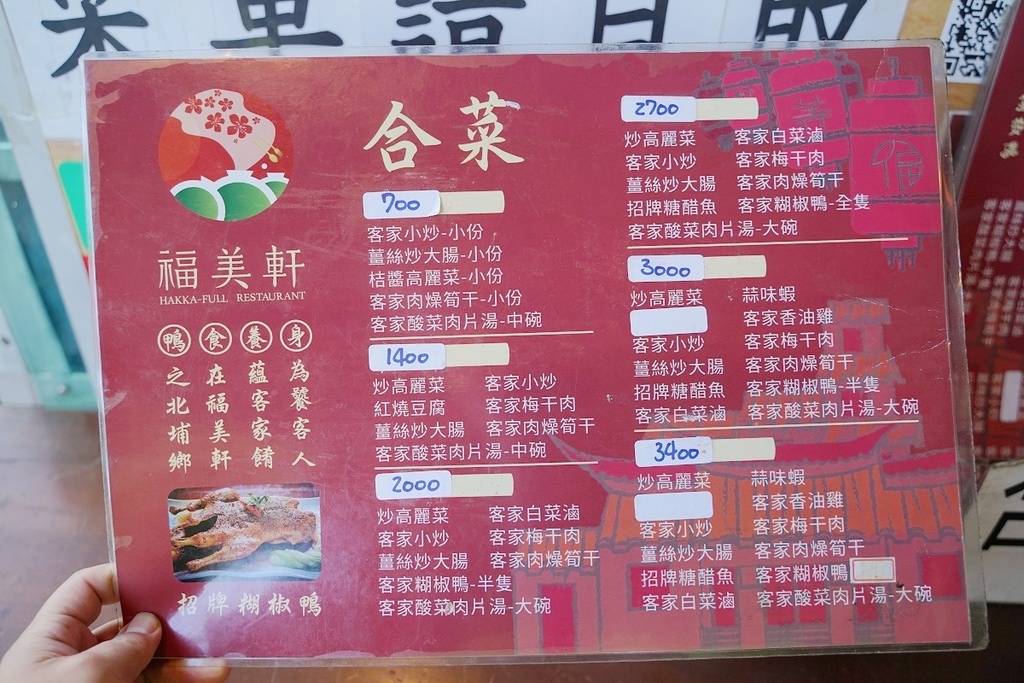 菜單請自取
福美軒
HAKKA-FULL RESTAURANT
鴨 食 養 身
之 在 蘊 為
北 福 客 饕
埔 美 家 客
鄉 軒 餚 人
招牌糊椒鴨
合菜
700
客家小炒-小份
薑絲炒大腸-小份
桔醬高麗菜-小份
客家肉燥筍干-小份
客家酸菜肉片湯-中碗
1400
炒高麗菜 客家小炒
紅燒豆腐 客家梅干肉
薑絲炒大腸 客家肉燥筍干
客家酸菜肉片湯-中碗
2000
炒高麗菜 客家白菜滷
客家小炒 客家梅干肉
薑絲炒大腸 客家肉燥筍干
客家糊椒鴨-半隻
客家酸菜肉片湯-大碗
2700
炒高麗菜 客家白菜滷
客家小炒 客家梅干肉
薑絲炒大腸 客家肉燥筍干
招牌糖醋魚 客家糊椒鴨-全隻
客家酸菜肉片湯-大碗
3000
炒高麗菜 蒜味蝦
客家香油雞
客家小炒 客家梅干肉
薑絲炒大腸 客家肉燥筍干
招牌糖醋魚 客家糊椒鴨-半隻
客家白菜滷 客家酸菜肉片湯-大碗
3400
炒高麗菜 蒜味蝦
客家香油雞
客家小炒 客家梅干肉
薑絲炒大腸 客家肉燥筍干
招牌糖醋魚 客家糊椒鴨
客家白菜滷 客家酸菜肉片湯-大碗